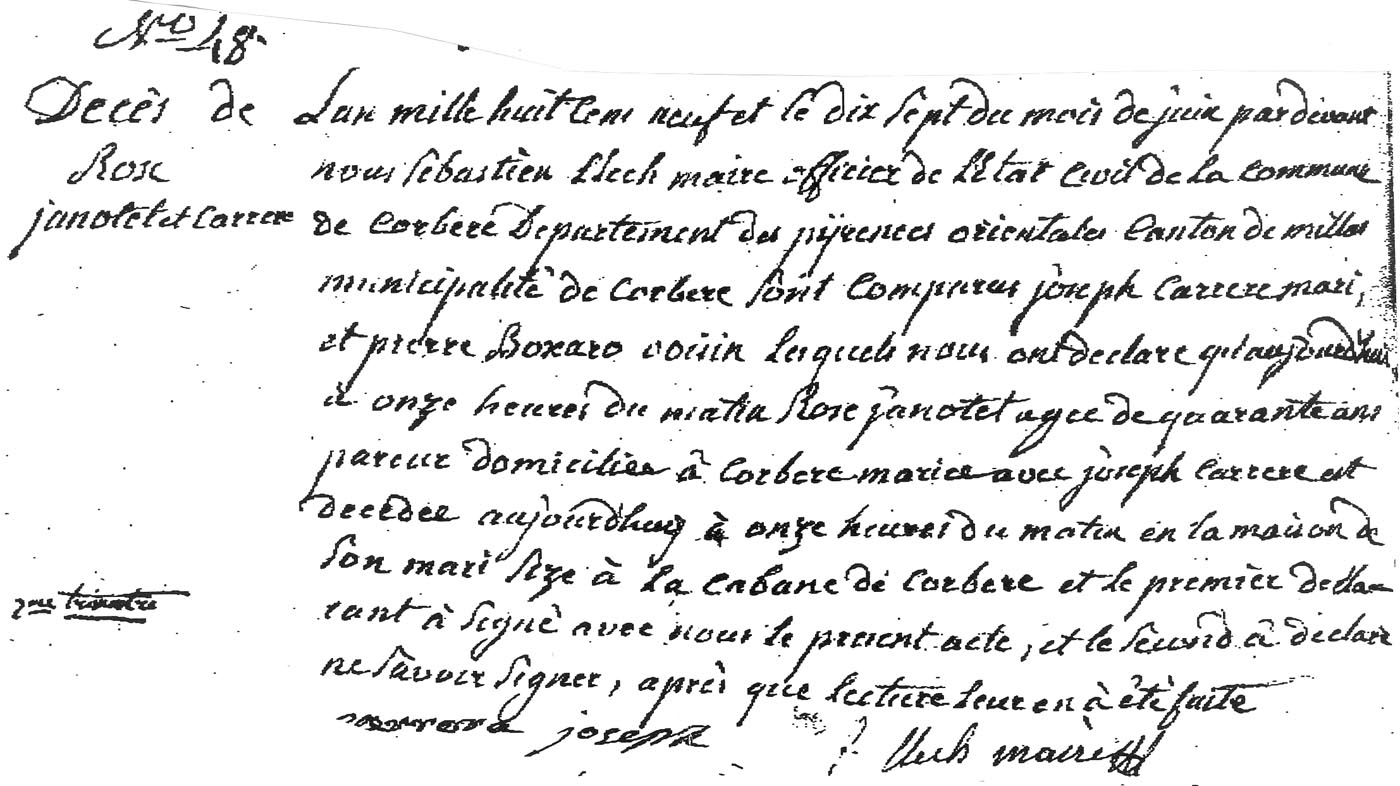 No 48.
Decès de
Rose
janotet et Carrere
Lan mille huit cens neuf et le dix sept du mois de juin pardevant
nous sébastien Llech maire officier de l'Etat civil de la commune
de Corbere Departement des pÿrenees orientales Canton de millas
municipalité de Corbere sont Comparus joseph Carrere mari,
et pierre Boxaro voisin lesquels nous ont declare qu'aujourdhui
à onze heures du matin Rose janotet agee de quarante ans
pareur domiciliée â Corbere mariee avec joseph Carrere est
decedee aujourdhuy à onze heures du matin en la maison de
son mari size à la Cabane de Corbere et le premier decla-
rant à signé avec nous le present acte, et le second â declaré
ne savoir signer, après que lecture leur en à été faite
2me trimestre
joseph
Llech maire